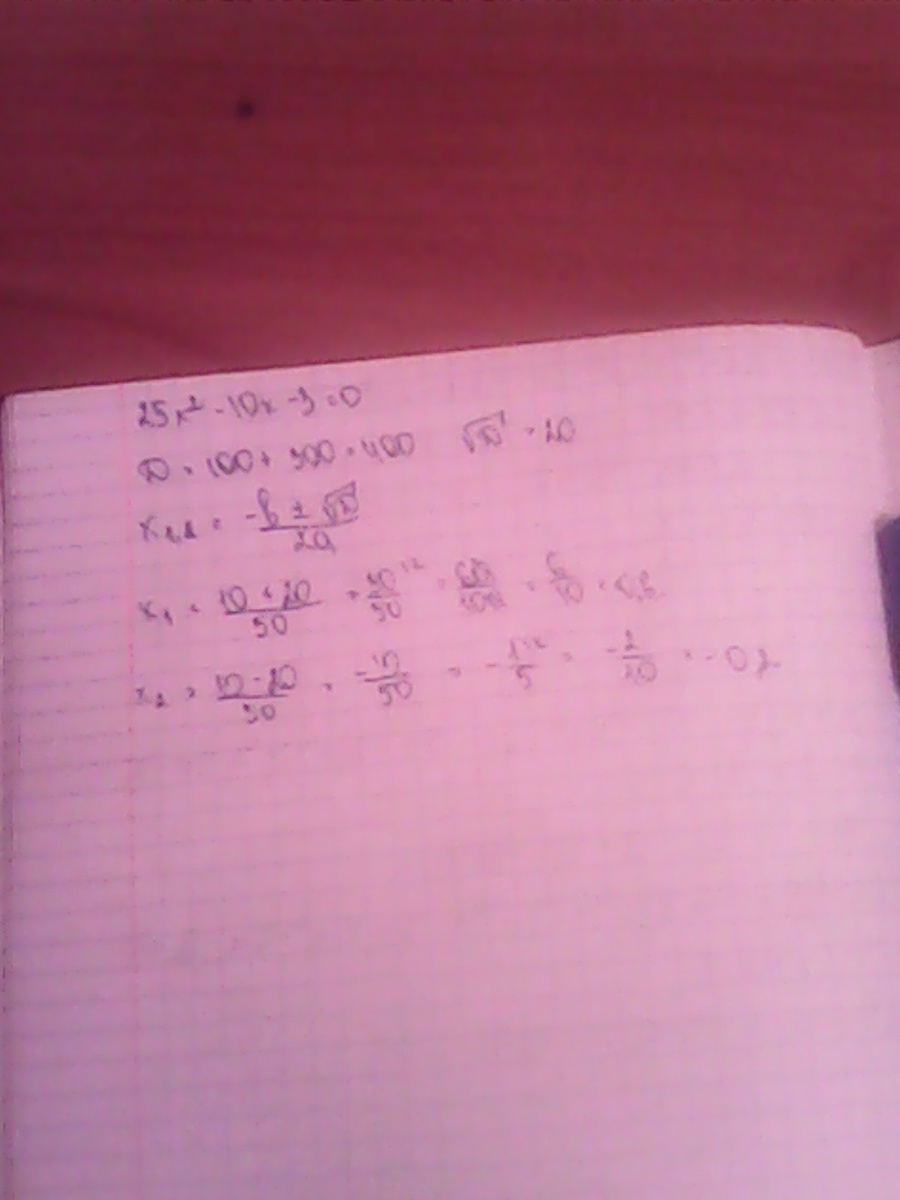 25x² - 10x - 3 = 0
D = 100 + 300 = 400 √D = 20
x₁,₂ = (-b ± √D)/2a
x₁ = (10 + 20)/50 = 30/50 = 60/100 = 6/10 = 0,6
x₂ = (10 - 20)/50 = -10/50 = -1/5 = -2/10 = -0,2